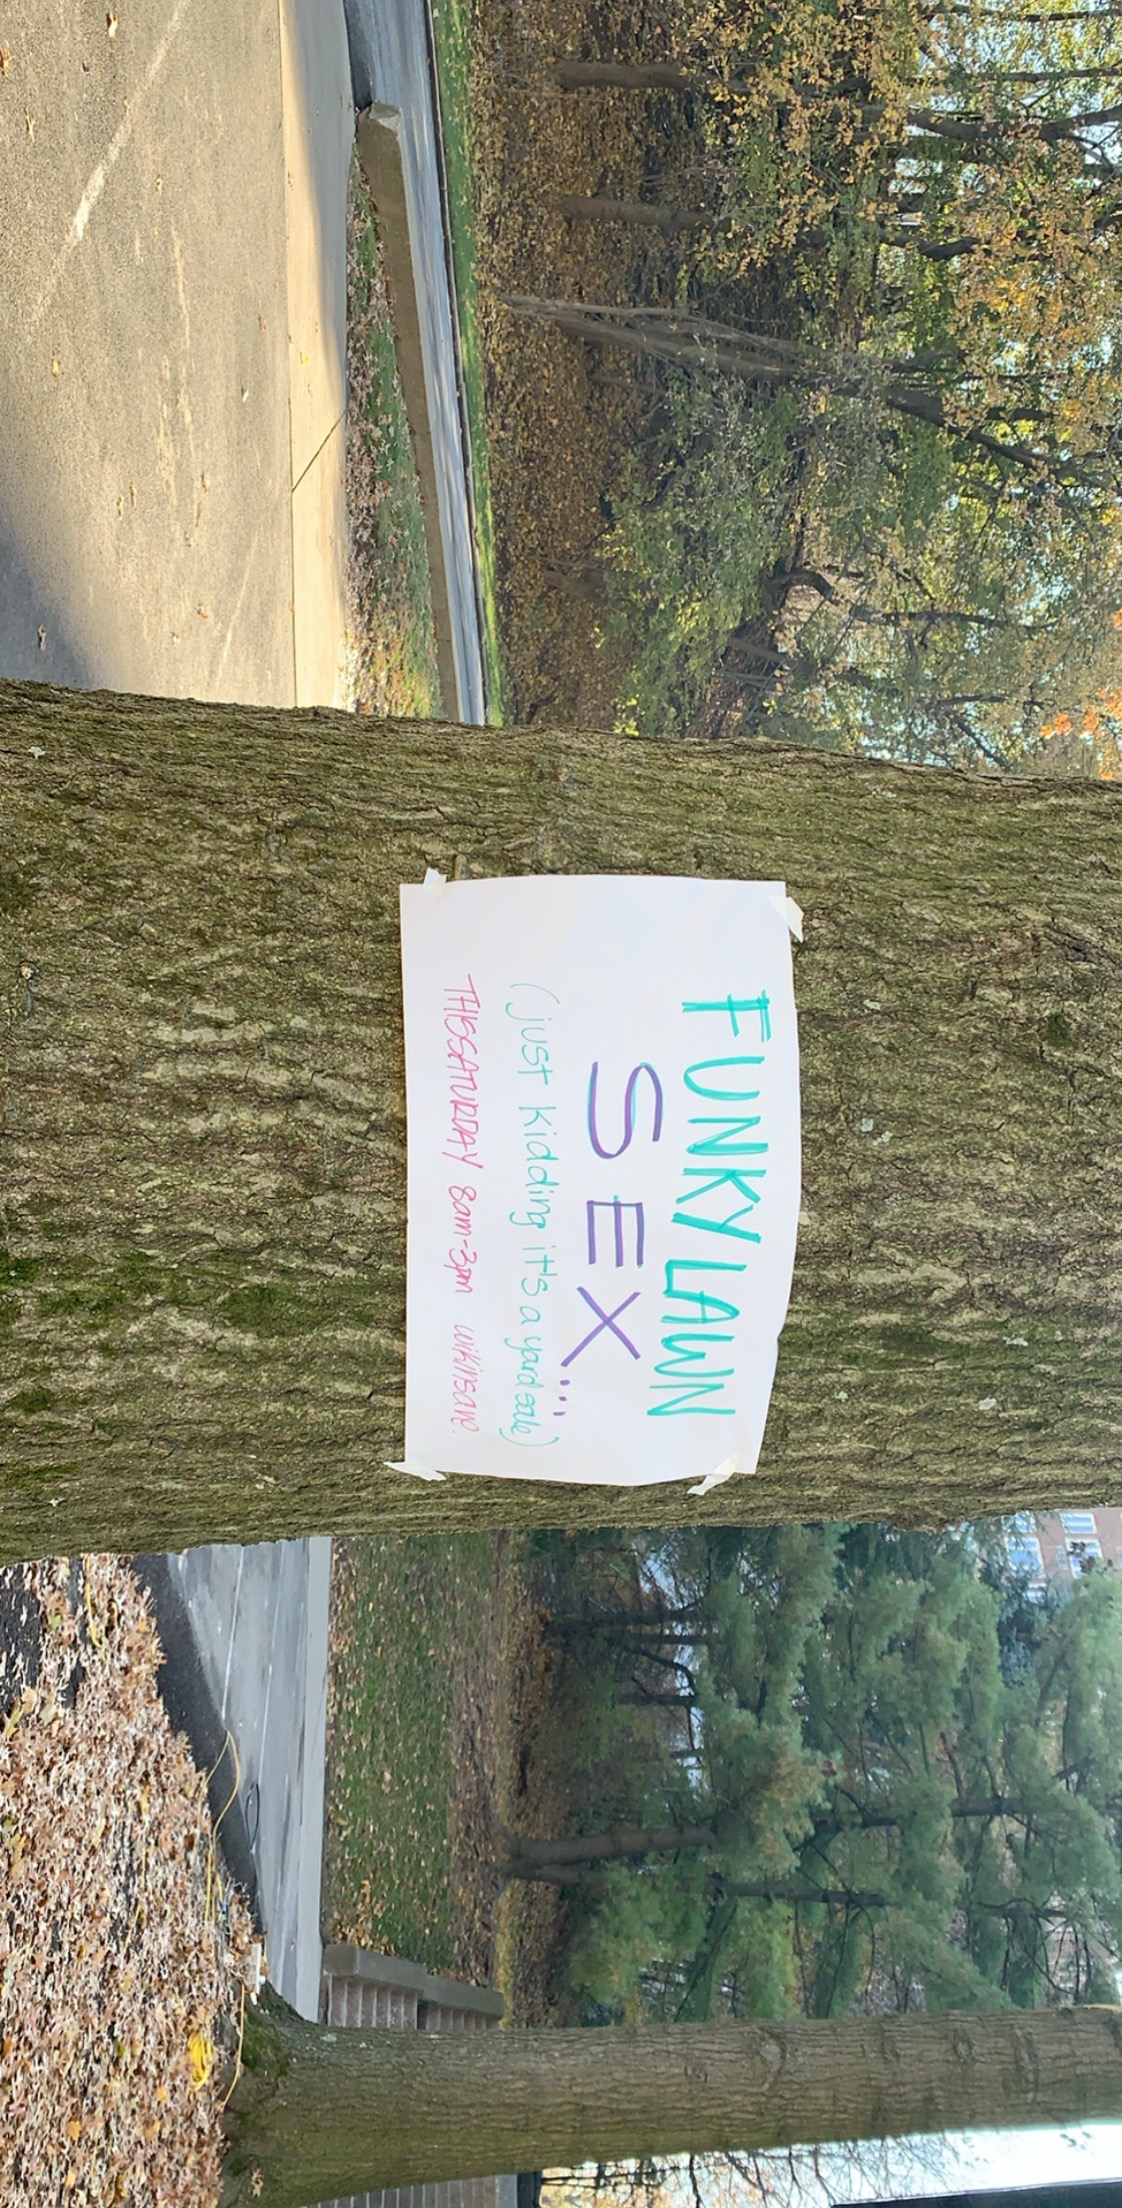 FUNKY LAWN
SEX...
(just kidding it's a yard sale)
THIS SATURDAY 8am-3pm wikins ave.